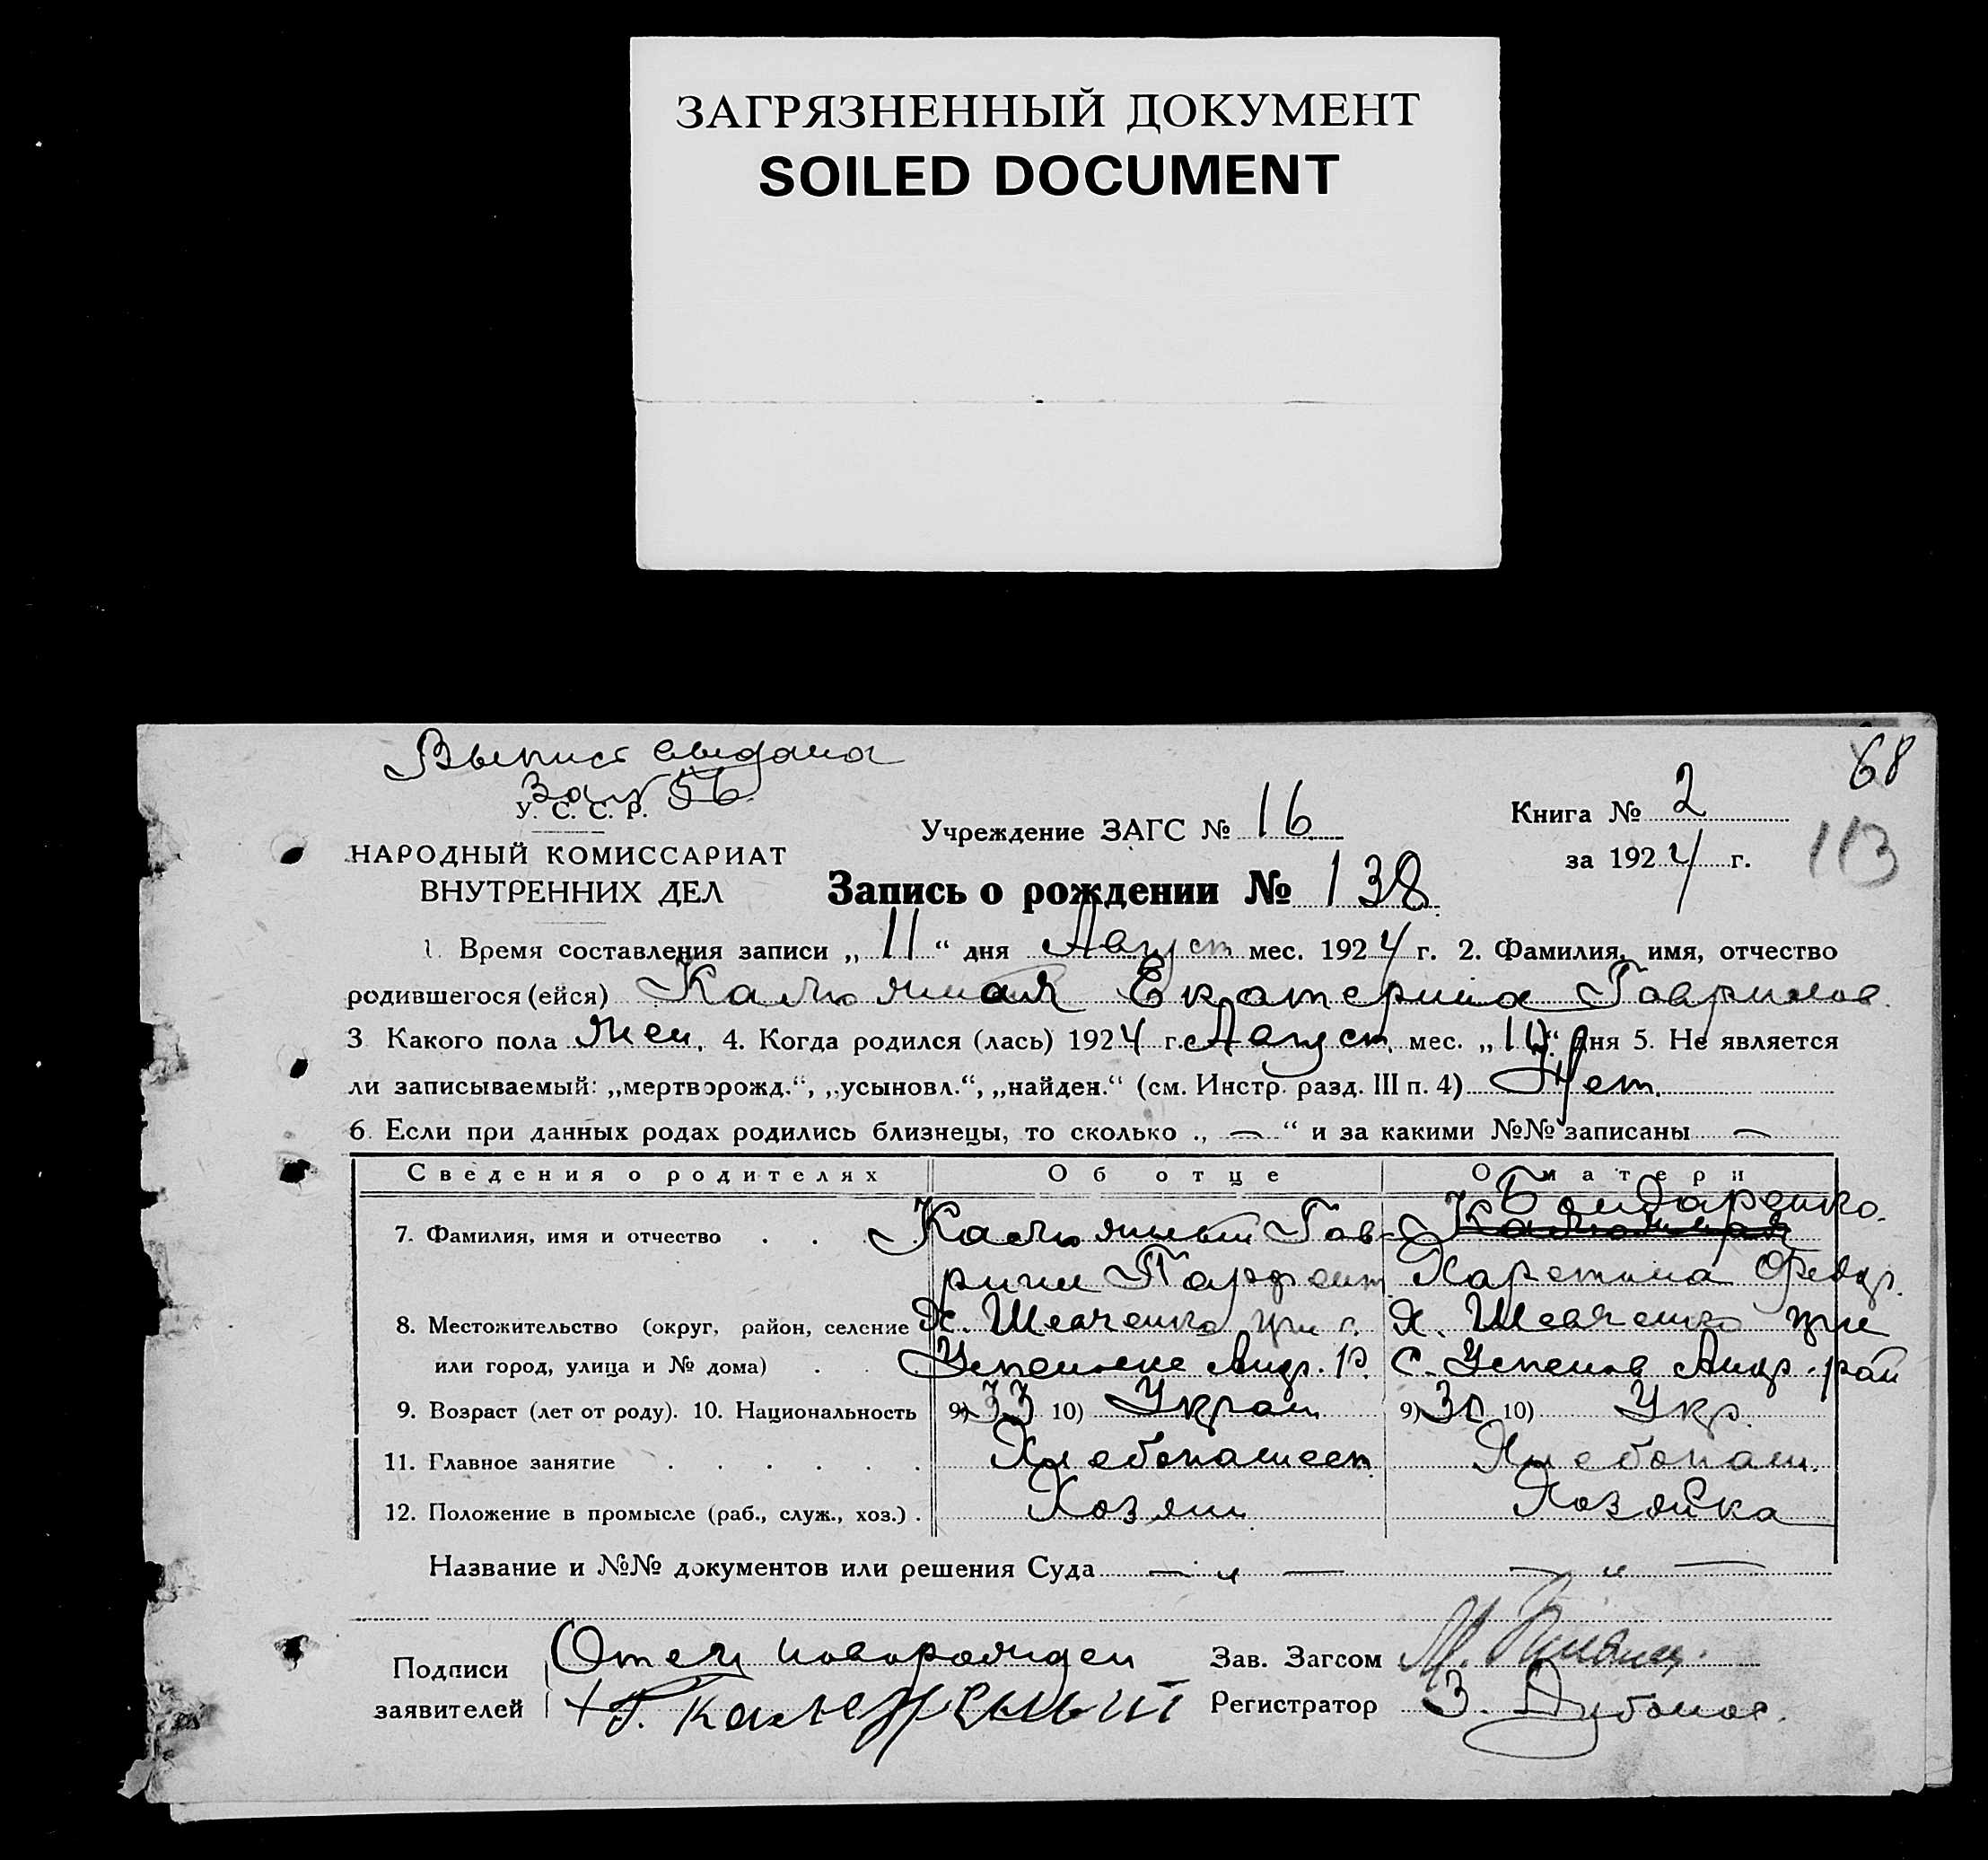 ЗАГРЯЗНЕННЫЙ ДОКУМЕНТ
SOILED DOCUMENT
68
Выпись выдана
за № 56
У. С. С. Р.
НАРОДНЫЙ КОМИССАРИАТ
ВНУТРЕННИХ ДЕЛ
Учреждение ЗАГС № 16
Книга № 2
за 1924 г.
113
Запись о рождении № 138
1. Время составления записи „ 11 “ дня Август мес. 1924 г. 2. Фамилия, имя, отчество
родившегося (ейся) Калюжная Екатерина Гаврилов.
3 Какого пола жен. 4. Когда родился (лась) 1924 г. Август. мес. „ 10 “ дня 5. Не является
ли записываемый: „мертворожд.“, „усыновл.“, „найден.“ (см. Инстр. разд. III п. 4) Нет.
6. Если при данных родах родились близнецы, то сколько „ — “ и за какими №№ записаны —
Сведения о родителях Об отце О матери
Бондаренко.
7. Фамилия, имя и отчество Калюжный Гав- Калюжная
риил Парфент Харетина Федор.
8. Местожительство (округ, район, селение Х. Шевченко при с. Х. Шевченко при
или город, улица и № дома) Успеновке Андр. р. с. Успенов Андр. рай
9. Возраст (лет от роду). 10. Национальность 9) 33 10) Украин 9) 30 10) Укр.
11. Главное занятие Хлебопашест. Хлебопаш.
12. Положение в промысле (раб., служ., хоз.) Хозяин Хозяйка
Название и №№ документов или решения Суда — „ — — „ —
Подписи заявителей
Отец новорожден
+ Г. Калюжный
Зав. Загсом М.
Регистратор З. Дубонос.